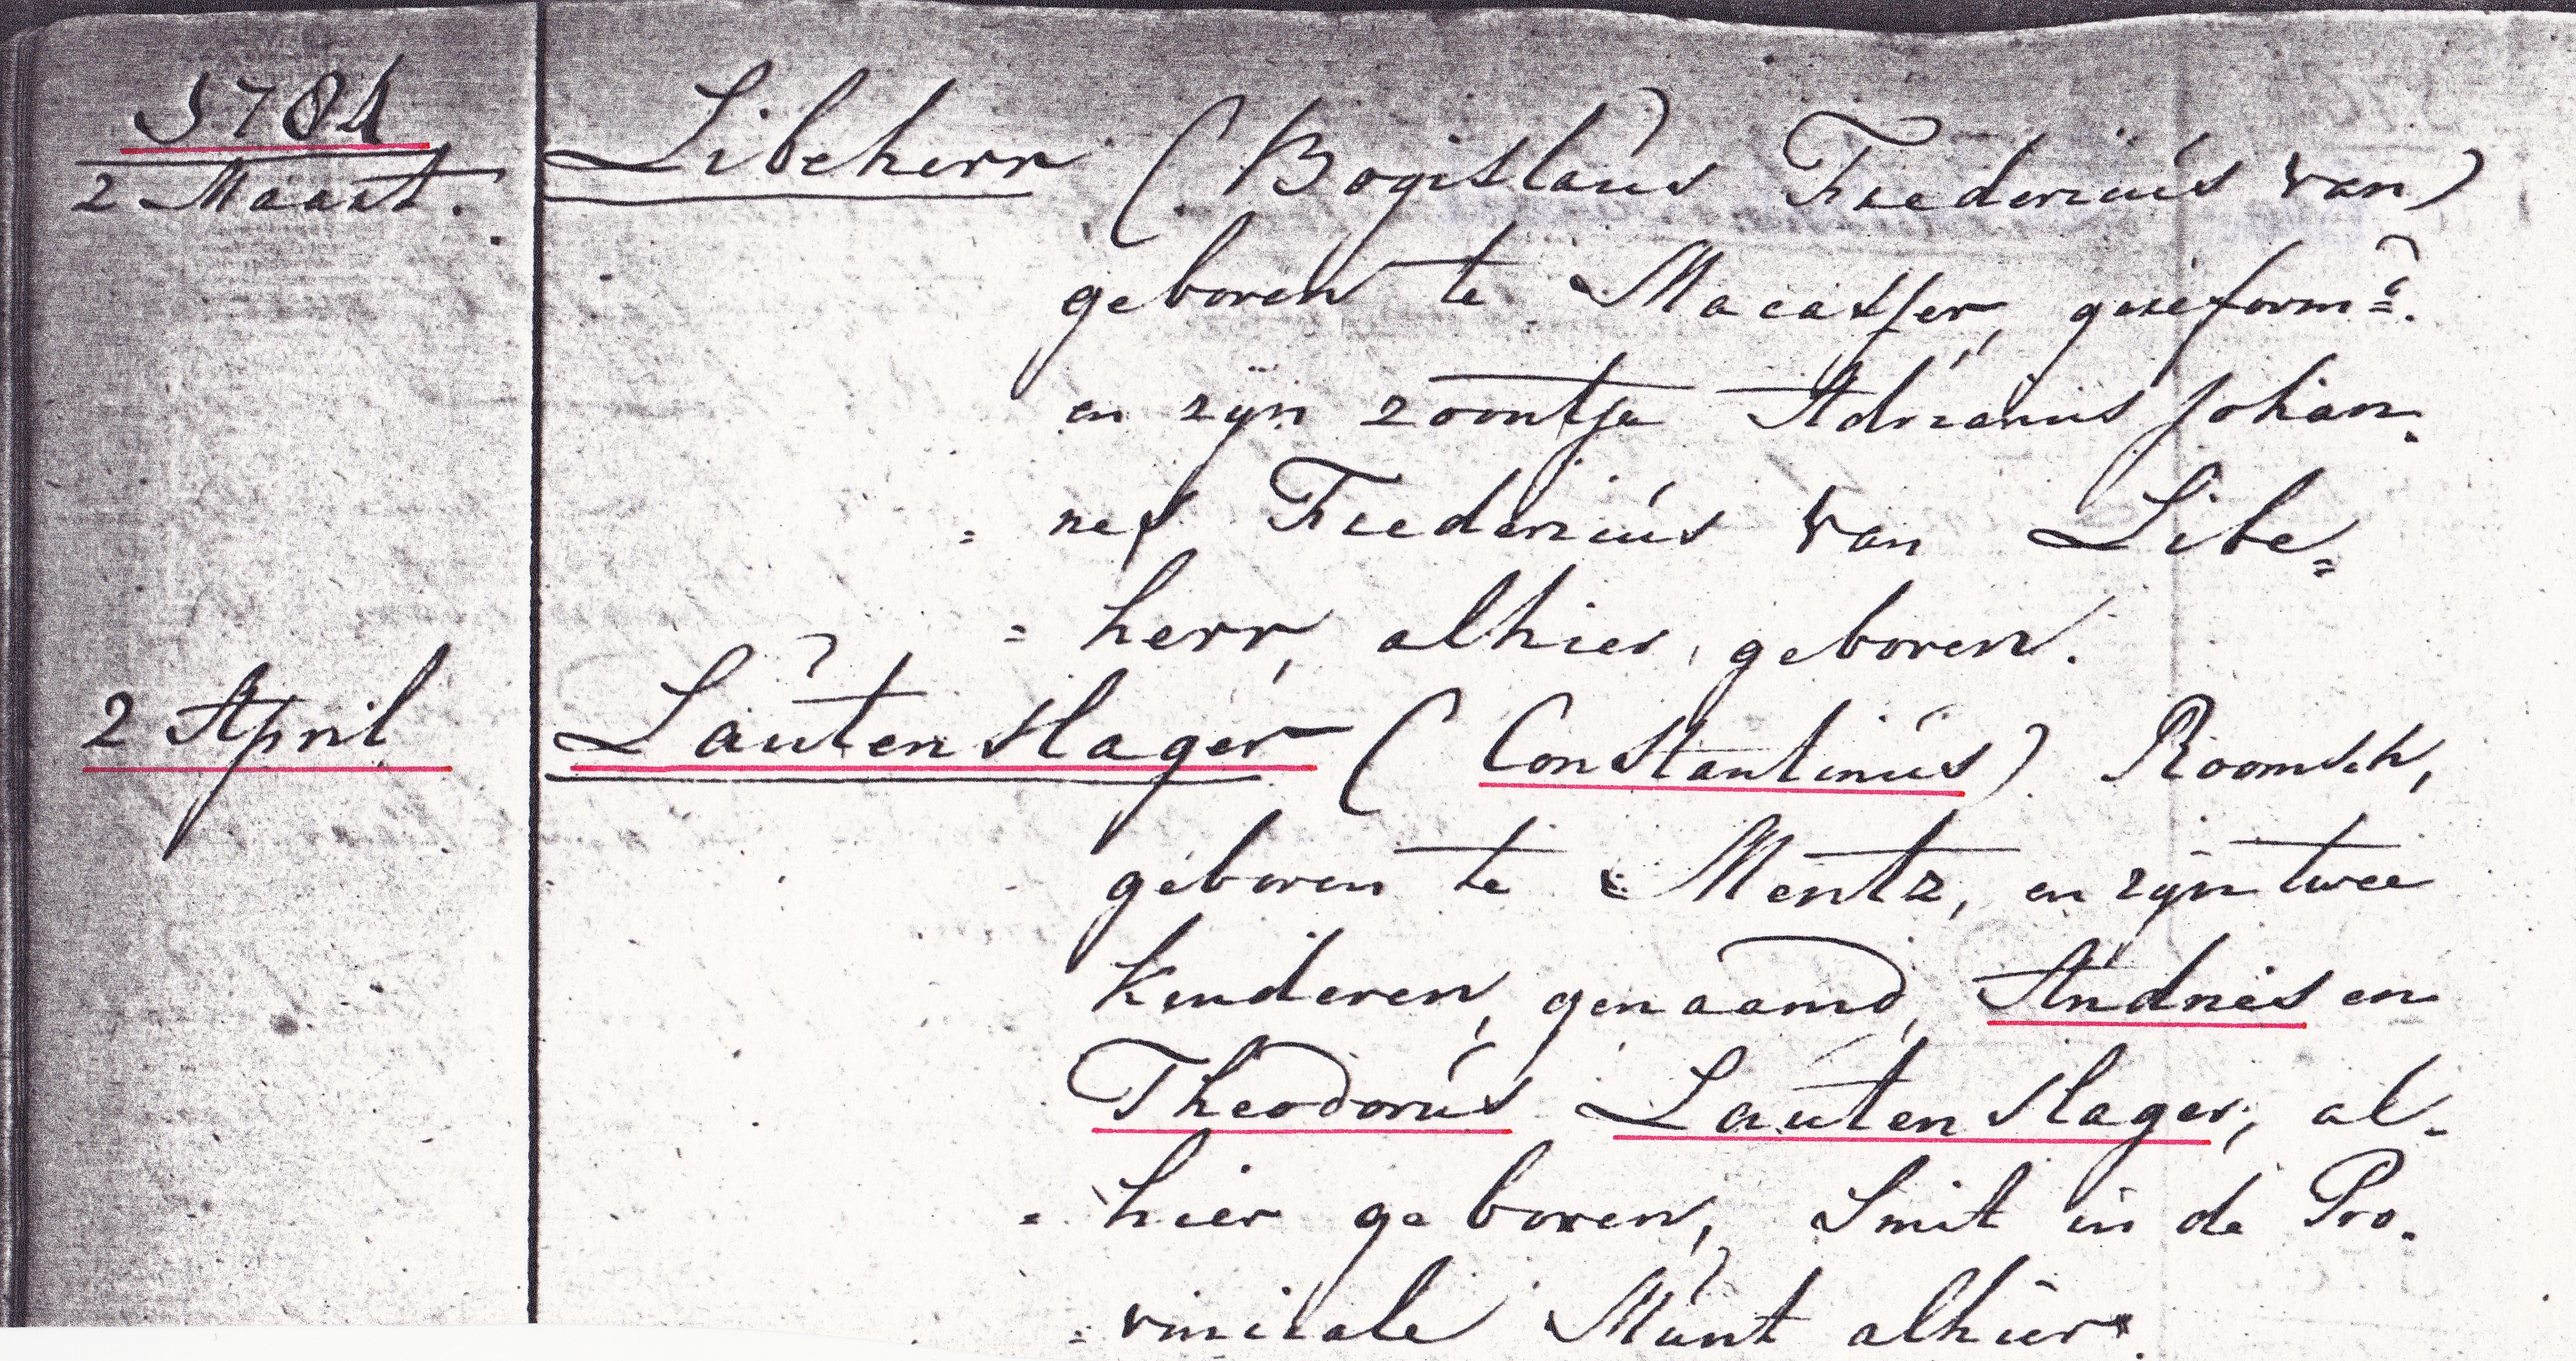 1784
2 Maart. Libeherr (Bogislaus Frederius van)
geboren te Macasser, gereform=d.
en zijn zoontje Adrianus Johan=
= nes Frederius van Libe=
= herr, alhier geboren.
2 April Lautenslager (Constantinus) Roomsch,
geboren te Mentz, en zijn twee
kinderen, genaamd, Andries en
Theodorus Lautenslager, al=
= hier geboren, Smit in de Pro=
= vinciale Munt alhier.